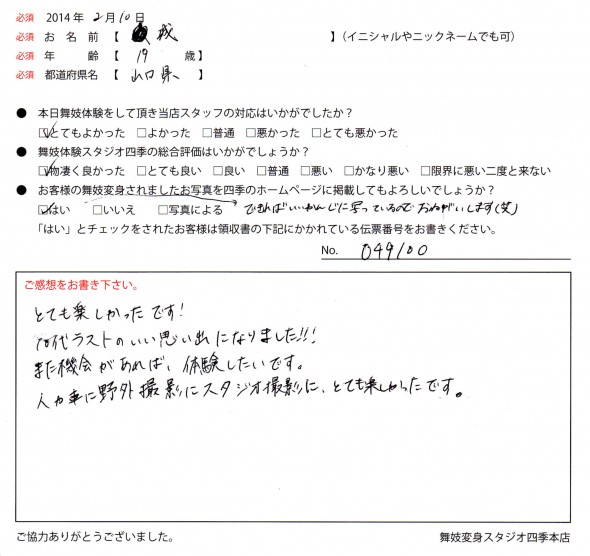 必須 2014 年 2 月 10 日
必須 お 名 前 【 成 】(イニシャルやニックネームでも可)
必須 年 齢 【 19 歳】
必須 都道府県名 【 山口県 】
● 本日舞妓体験をして頂き当店スタッフの対応はいかがでしたか?
☑とてもよかった □よかった □普通 □悪かった □とても悪かった
● 舞妓体験スタジオ四季の総合評価はいかがでしょうか?
☑物凄く良かった □とても良い □良い □普通 □悪い □かなり悪い □限界に悪い二度と来ない
● お客様の舞妓変身されましたお写真を四季のホームページに掲載してもよろしいでしょうか?
☑はい □いいえ □写真による できればいいかんじに写っているのでおねがいします(笑)
「はい」とチェックをされたお客様は領収書の下記にかかれている伝票番号をお書きください。
No. 049100
ご感想をお書き下さい。
とても楽しかったです!
10代ラストのいい思い出になりました!!!
また機会があれば、体験したいです。
人力車に野外撮影にスタジオ撮影に、とても楽しかったです。
ご協力ありがとうございました。 舞妓変身スタジオ四季本店